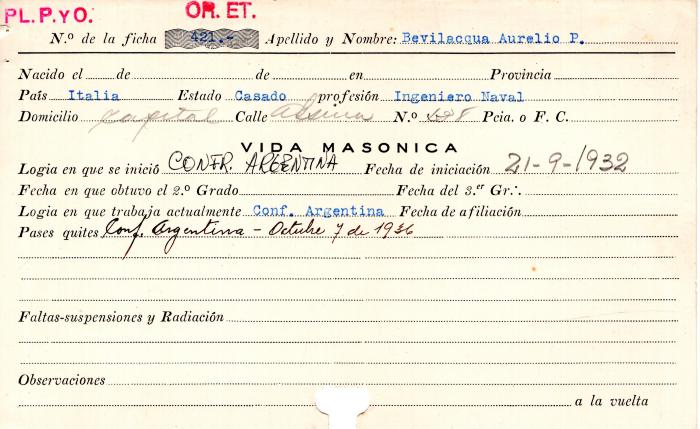 PL. P. yO. OR. ET.
N.º de la ficha 421.- Apellido y Nombre: Bevilacqua Aurelio P.
Nacido el de de en Provincia
País Italia Estado Casado profesión Ingeniero Naval
Domicilio Capital Calle Alsina N.º Pcia. o F. C.
VIDA MASONICA
Logia en que se inició CONFR. ARGENTINA Fecha de iniciación 21-9-1932
Fecha en que obtuvo el 2.º Grado Fecha del 3.er Gr∴
Logia en que trabaja actualmente Conf. Argentina Fecha de afiliación
Pases quites Conf. Argentina - Octubre 7 de 1936
Faltas-suspensiones y Radiación
Observaciones
a la vuelta